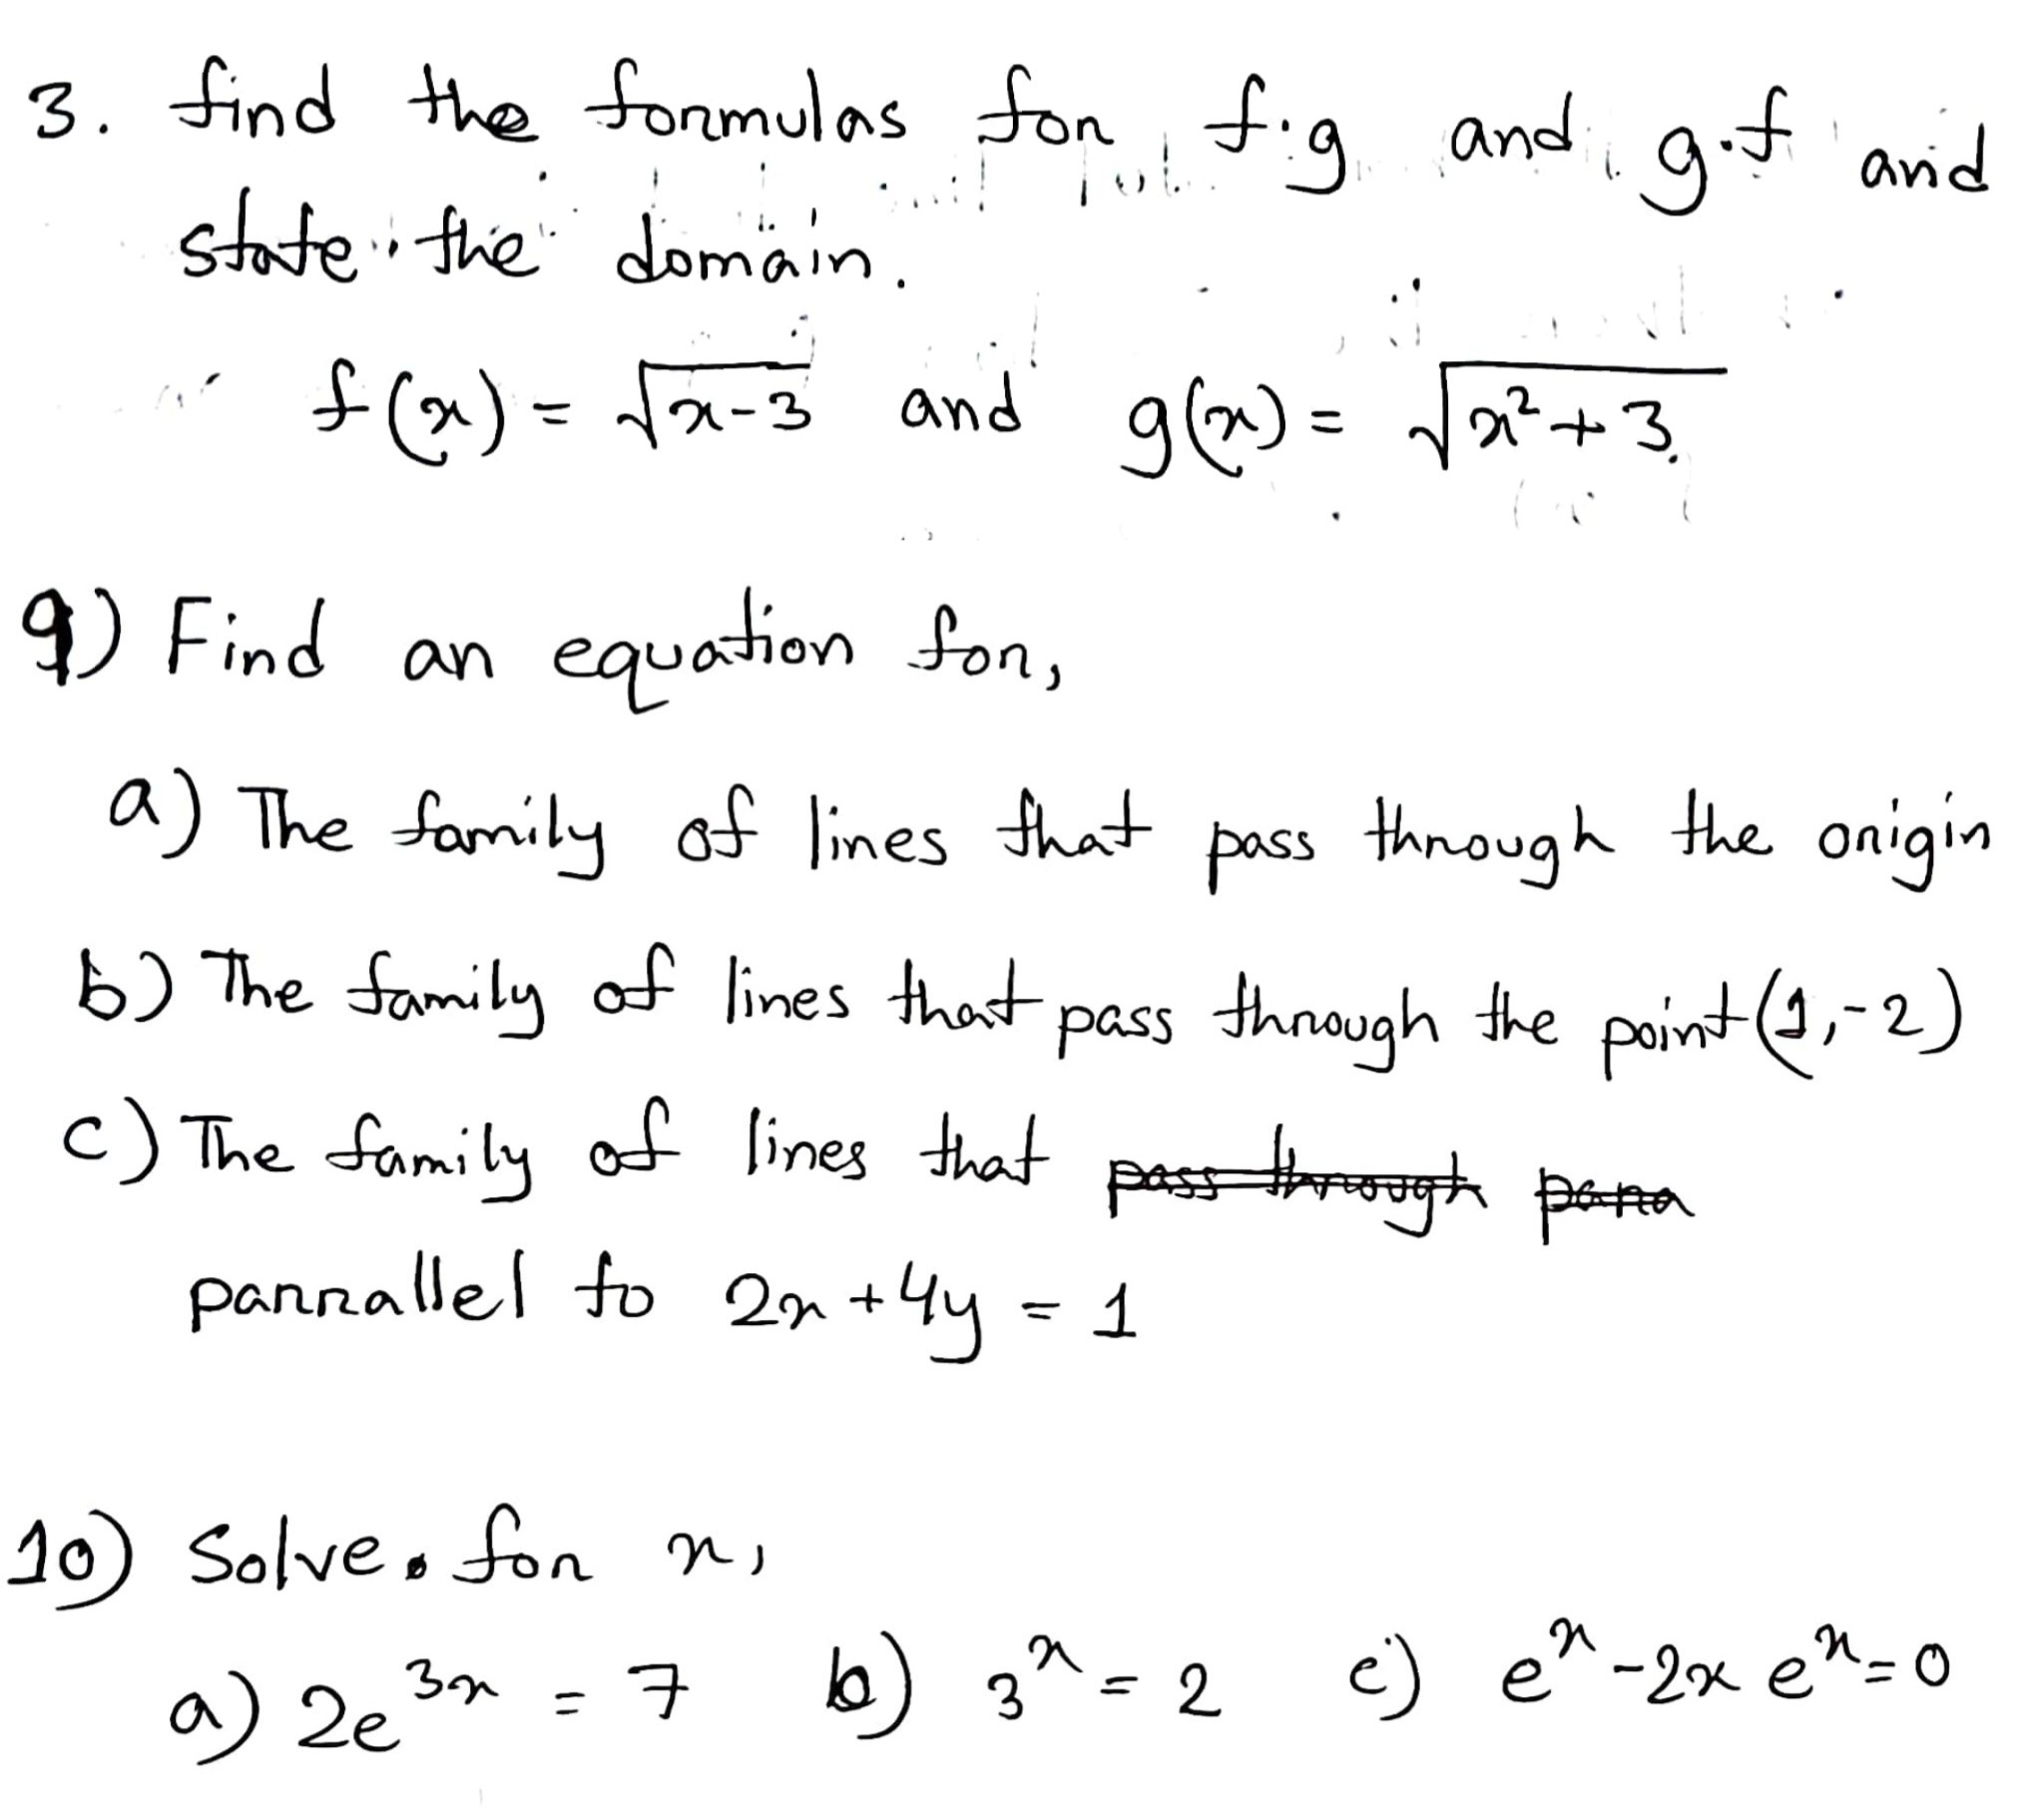 3. find the formulas for f·g and g·f and
state the domain.
f(x) = √x-3 and g(x) = √x²+3.
9) Find an equation for,
a) The family of lines that pass through the origin
b) The family of lines that pass through the point (1,-2)
c) The family of lines that pass through para
parrallel to 2x+4y = 1
10) Solve. for x,
a) 2e³ˣ = 7 b) 3ˣ = 2 c) eˣ-2xeˣ=0